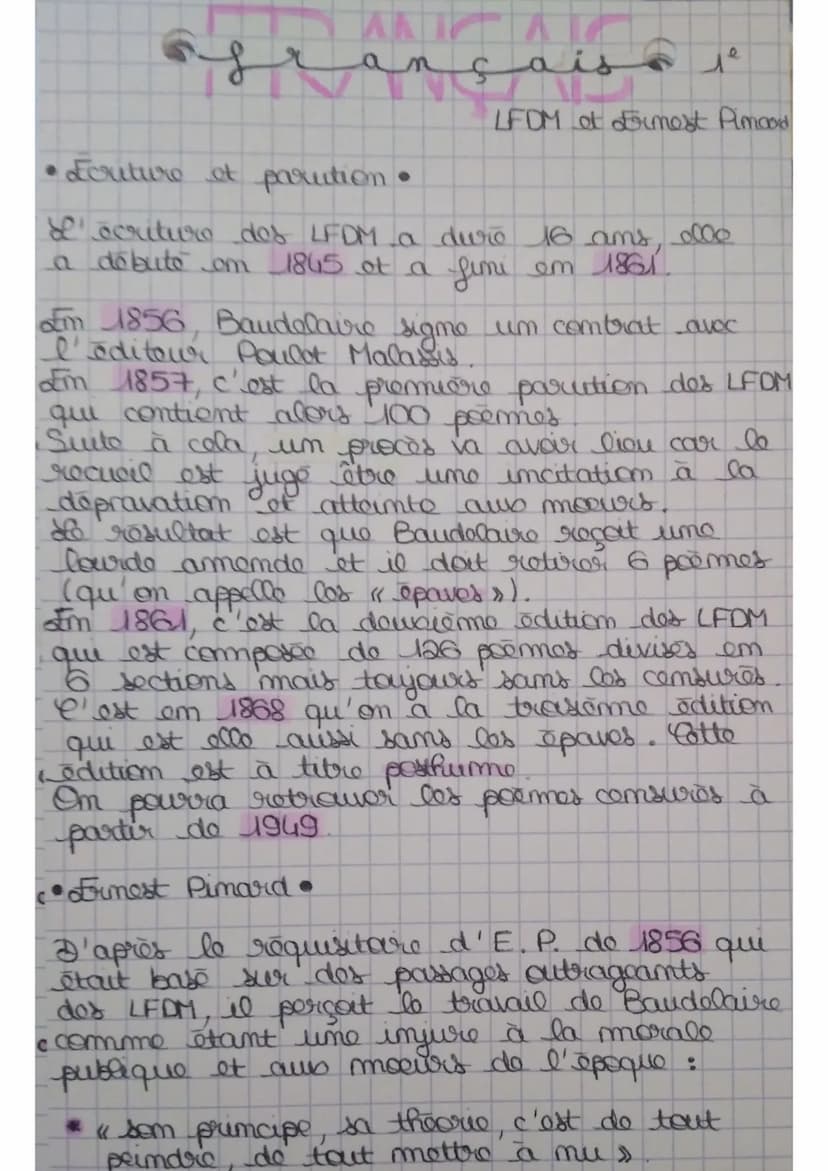 FRANÇAIS
français 1e
LFDM et Ernest Pinard
• Écriture et parution •
L'écriture des LFDM a duré 16 ans, elle
a débuté en 1845 et a fini en 1861.
En 1856, Baudelaire signe un contrat avec
l'éditeur Poulet Malassis.
En 1857, c'est la première parution des LFDM
qui contient alors 100 poèmes.
Suite à cela, un procès va avoir lieu car le
recueil est jugé être une incitation à la
dépravation et atteinte aux moeurs.
Le résultat est que Baudelaire reçoit une
lourde amende et il doit retirer 6 poèmes
(qu'on appelle les « épaves »).
En 1861, c'est la deuxième édition des LFDM
qui est composée de 126 poèmes divisés en
6 sections mais toujours sans les censurés.
C'est en 1868 qu'on a la troisième édition
qui est elle aussi sans les épaves. Cette
édition est à titre posthume.
On pourra retrouver les poèmes censurés à
partir de 1949.
• Ernest Pinard •
D'après le réquisitaire d'E. P. de 1856 qui
était basé sur des passages outrageants
des LFDM, il perçoit le travail de Baudelaire
comme étant une injure à la morale
publique et aux moeurs de l'époque :
* « son principe, sa théorie, c'est de tout
peindre, de tout mettre à nu ».